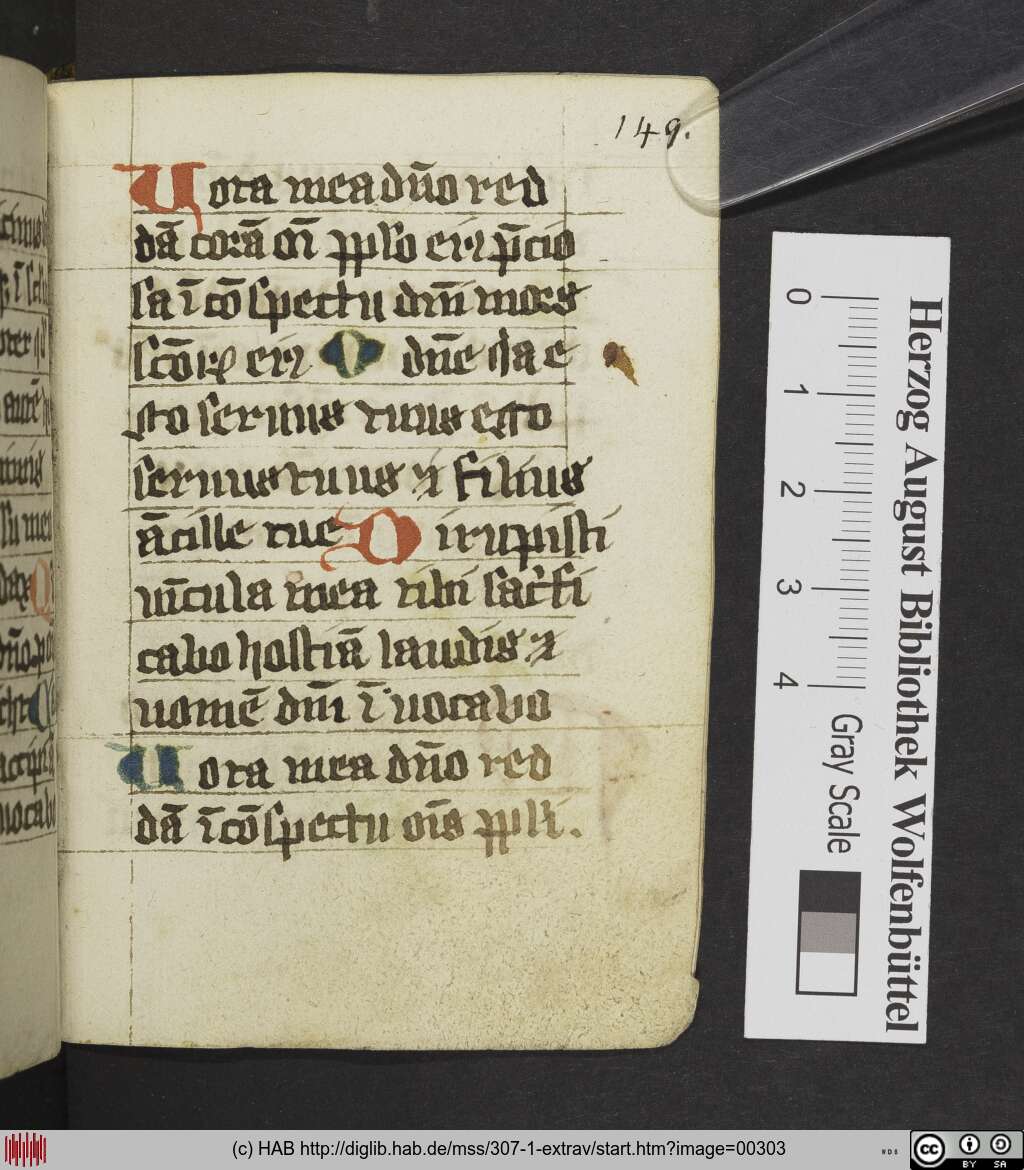 149.
Vota mea dn̄o red
dā corā oī pplo eiꝰ p̄cio
sa ī cōspectu dnī mors
scōꝝ eiꝰ O dn̄e qͥa e
go seruus tuus ego
seruus tuus ⁊ filius
ācille tue Dirupisti
uīcula mea tibi sac͛fi
cabo hostiā laudis ⁊
nomē dnī īuocabo
Vota mea dn̄o red
dā ī cōspectu oīs ppli.
0
1
2
3
4
Gray Scale
Herzog August Bibliothek Wolfenbüttel
(c) HAB http://diglib.hab.de/mss/307-1-extrav/start.htm?image=00303
cc BY SA